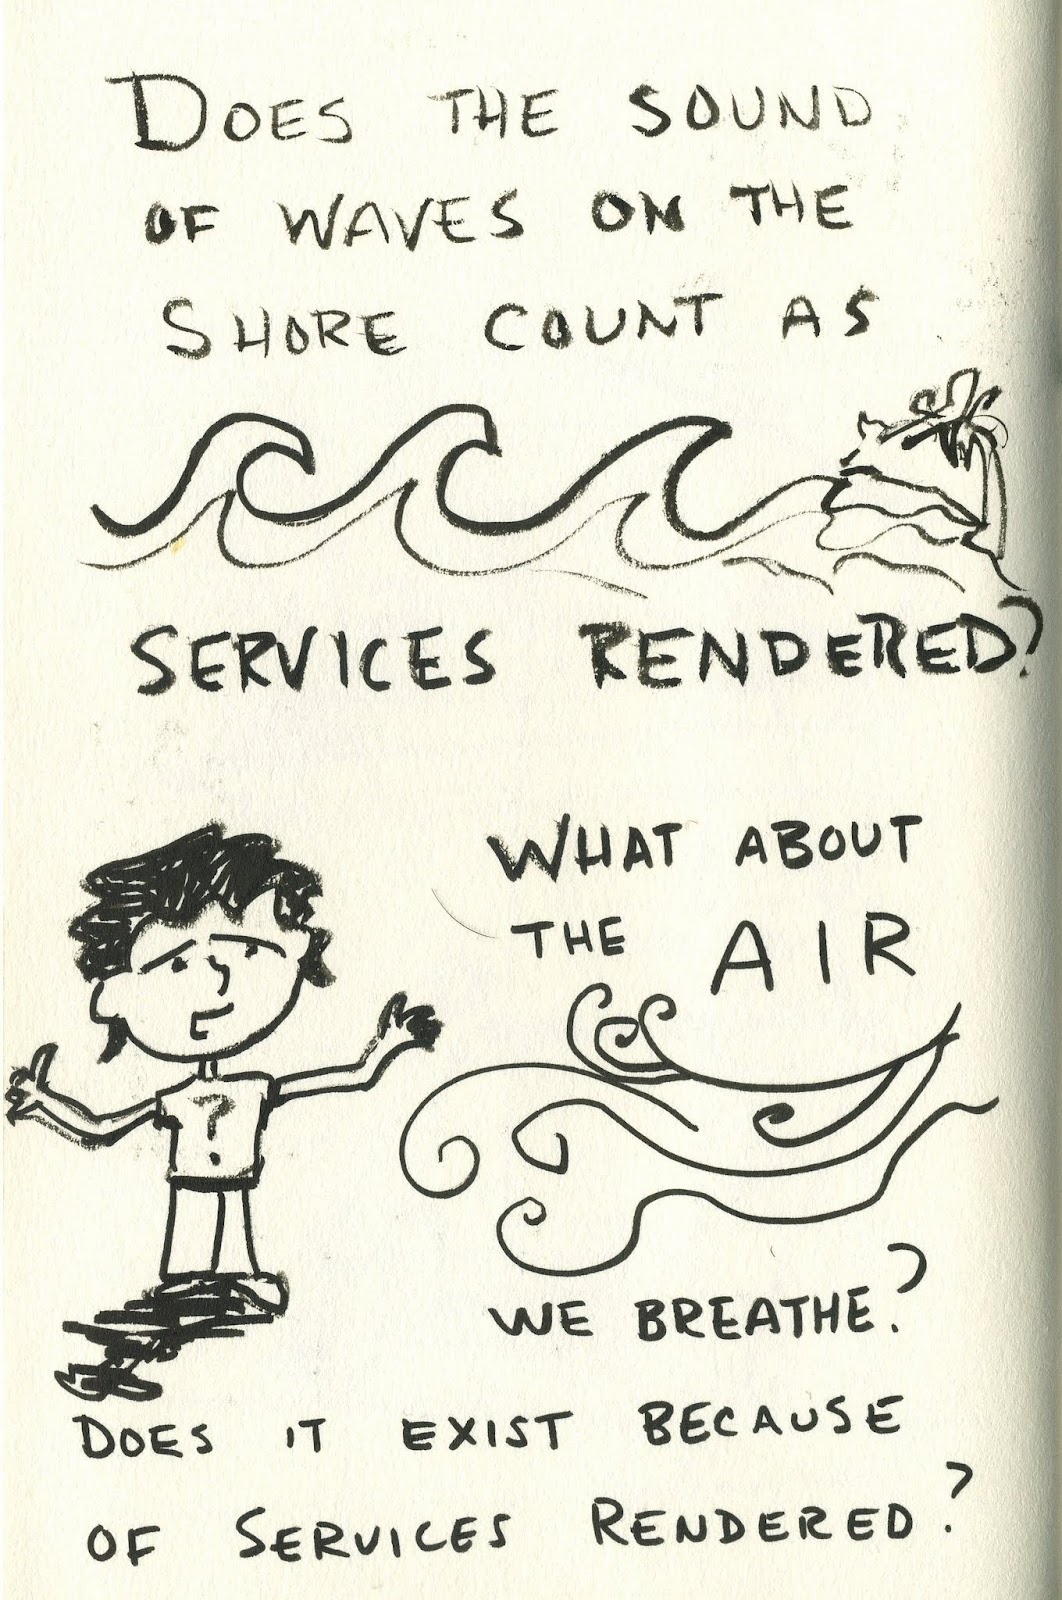 DOES THE SOUND
OF WAVES ON THE
SHORE COUNT AS
SERVICES RENDERED?
WHAT ABOUT
THE AIR
?
WE BREATHE?
DOES IT EXIST BECAUSE
OF SERVICES RENDERED?